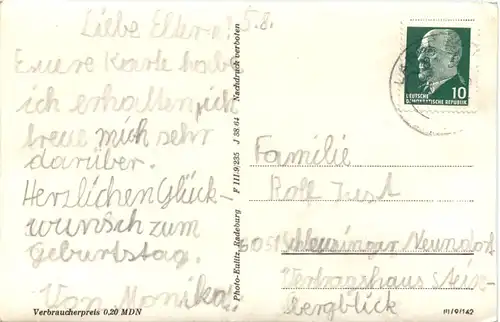 Liebe Eltern! 5.8.
Eure Karte habe
ich erhalten, ich
freue mich sehr
darüber.
Herzlichen Glück-
wunsch zum
Geburtstag.
Von Monika
Verbraucherpreis 0,20 MDN
Photo-Eulitz, Radeburg F 111.9/235 J 38.64 Nachdruck verboten
10
DEUTSCHE
DEMOKRATISCHE REPUBLIK
Familie
Rolf Just
6051 Schleusinger Neundorf
bergblick
III/9/142